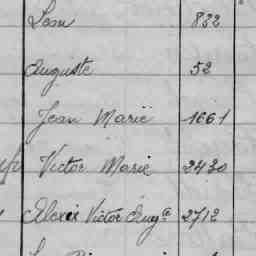 Léon 832
Auguste 52
Jean Marie 1661
Victor Marie 2430
Alexis Victor Aug^te 2712